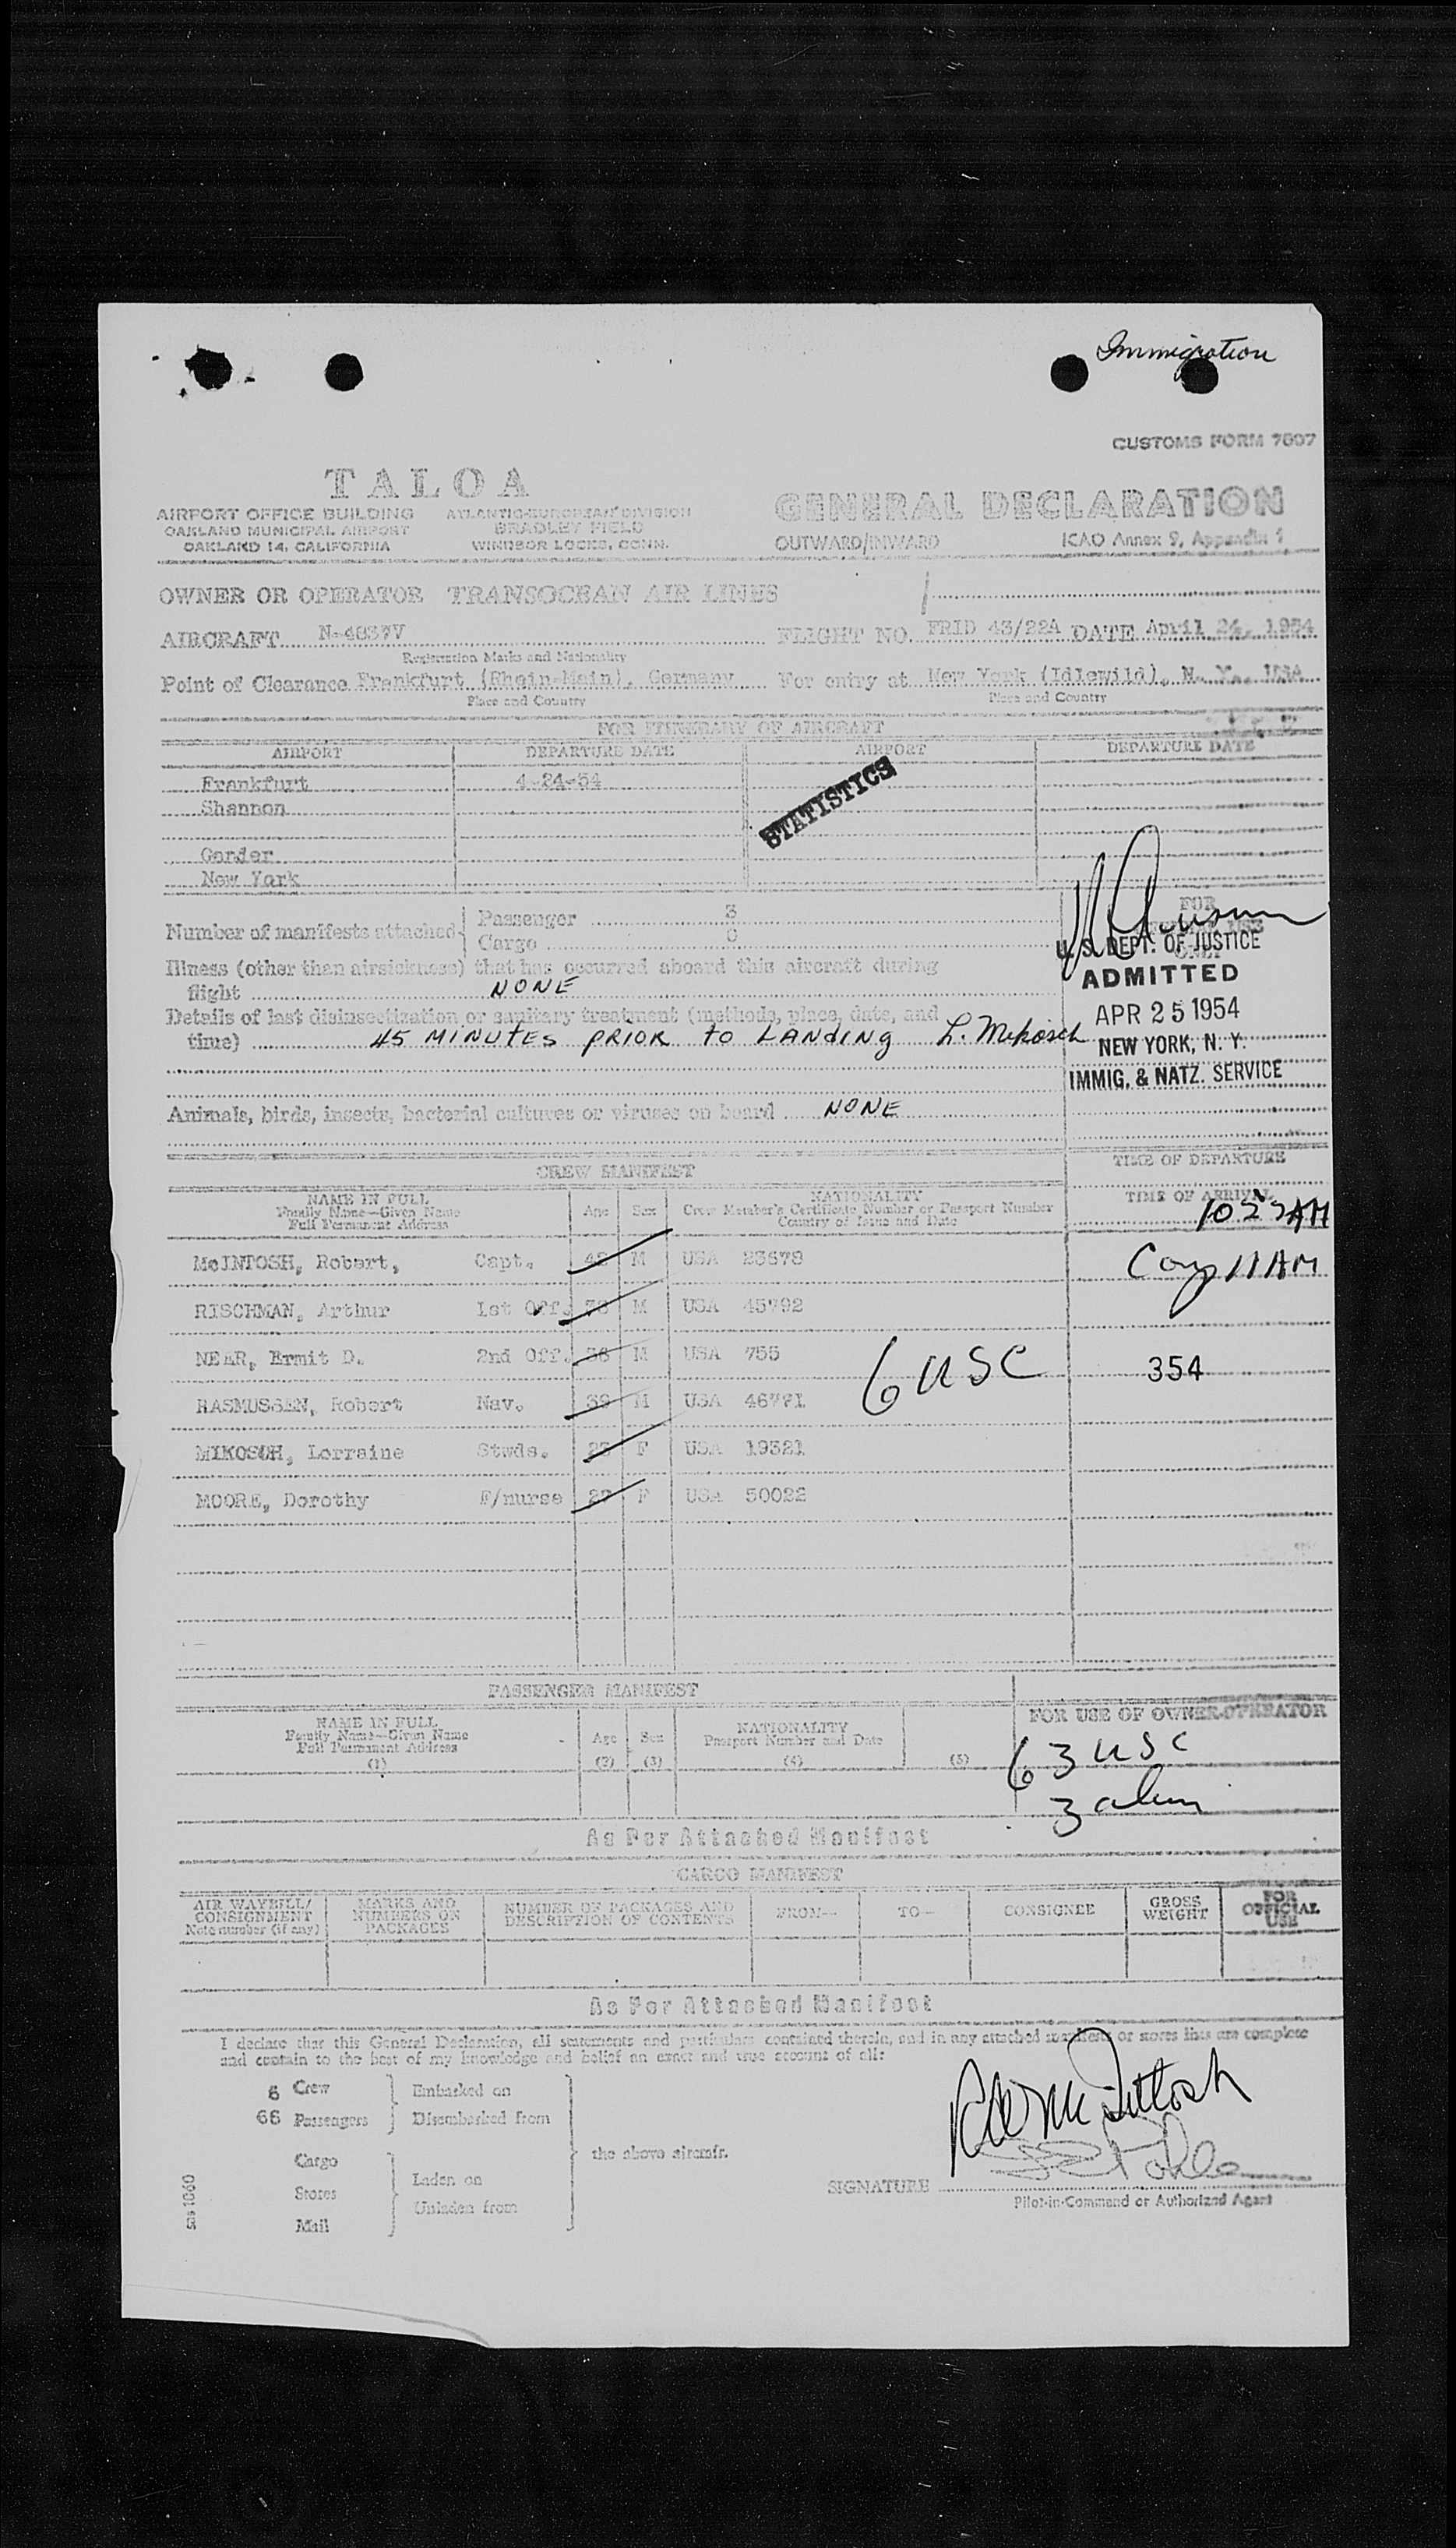 Immigration
CUSTOMS FORM 7507
TALOA
AIRPORT OFFICE BUILDING
OAKLAND MUNICIPAL AIRPORT
OAKLAND 14, CALIFORNIA
ATLANTIC-EUROPEAN DIVISION
BRADLEY FIELD
WINDSOR LOCKS, CONN.
GENERAL DECLARATION
OUTWARD/INWARD ICAO Annex 9, Appendix 1
OWNER OR OPERATOR TRANSOCEAN AIR LINES
AIRCRAFT N-4837V FLIGHT NO. FRID 43/22A DATE April 24, 1954
Registration Marks and Nationality
Point of Clearance Frankfurt (Rhein-Main), Germany For entry at New York (Idlewild), N. Y., USA
Place and Country Place and Country
FOR ITINERARY OF AIRCRAFT
AIRPORT DEPARTURE DATE AIRPORT DEPARTURE DATE
Frankfurt 4-24-54
Shannon
STATISTICS
Gander
New York
Number of manifests attached Passenger 3
Cargo 0
FOR
OFFICIAL USE
ONLY
Illness (other than airsickness) that has occurred aboard this aircraft during
flight NONE
Details of last disinsectization or sanitary treatment (methods, place, date, and
time) 45 MINUTES PRIOR TO LANDING L. Mikosch
U. S. DEPT. OF JUSTICE
ADMITTED
APR 25 1954
NEW YORK, N. Y.
IMMIG. & NATZ. SERVICE
Animals, birds, insects, bacterial cultures or viruses on board NONE
CREW MANIFEST
TIME OF DEPARTURE
NAME IN FULL
Family Name—Given Name
Full Permanent Address
Age Sex
NATIONALITY
Crew Member's Certificate Number or Passport Number
Country of Issue and Date
TIME OF ARRIVAL
McINTOSH, Robert, Capt. 42 M USA 23678
11 AM
RISCHMAN, Arthur 1st Off. M USA 45792
NEAR, Ermit D. 2nd Off. 36 M USA 755
6 USC
354
RASMUSSEN, Robert Nav. 39 M USA 46771
MIKOSCH, Lorraine Stwds. F USA 19321
MOORE, Dorothy F/nurse 27 F USA 50022
PASSENGER MANIFEST
NAME IN FULL
Family Name—Given Name
Full Permanent Address
(1)
Age
(2)
Sex
(3)
NATIONALITY
Passport Number and Date
(4)
(5)
FOR USE OF OWNER-OPERATOR
63 USC
3 alien
As Per Attached Manifest
CARGO MANIFEST
AIR WAYBILL/
CONSIGNMENT
Note number (if any)
MARKS AND
NUMBERS ON
PACKAGES
NUMBER OF PACKAGES AND
DESCRIPTION OF CONTENTS
FROM—
TO—
CONSIGNEE
GROSS
WEIGHT
FOR
OFFICIAL
USE
As Per Attached Manifest
I declare that this General Declaration, all statements and particulars contained therein, and in any attached manifests or stores lists are complete
and contain to the best of my knowledge and belief an exact and true account of all:
6 Crew Embarked on
66 Passengers Disembarked from
the above aircraft.
Cargo
Stores Laden on
Mail Unladen from
SIGNATURE
Pilot-in-Command or Authorized Agent